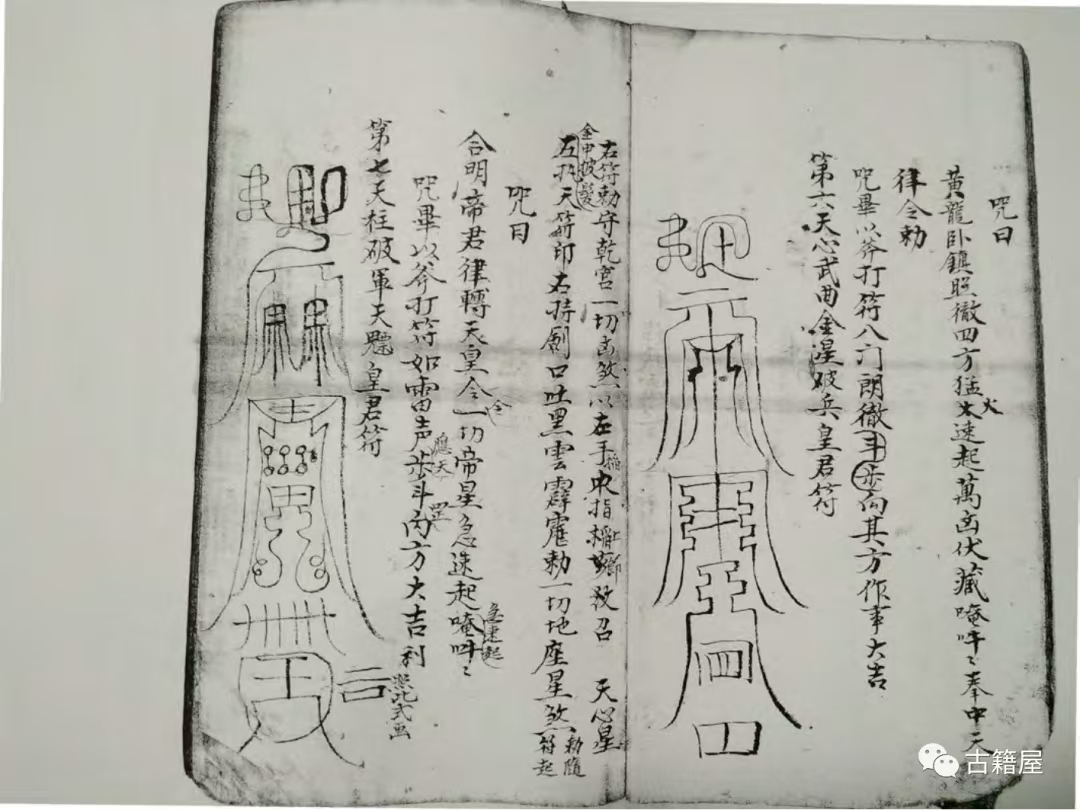 咒曰
黃龍卧鎮照徹四方猛火速起萬凶伏藏唵吽〻奉中元
律令勅
咒畢以斧打符八门朗徹斗步向其方作事大吉
第六天心武曲金星破兵皇君符
右符勅守乾宮一切凶煞以左手中指 召 天心星
金甲披髮
左执天符印右持劍口吐黑雲霹靂勅一切地座星煞勅隨符起
咒曰
合明帝君律轉天皇令一切帝星急速起唵吽〻
急速起
咒畢以斧打符如雷声步斗内方大吉利
應天
罡
第七天柱破軍天魁皇君符
照此式画
古籍屋